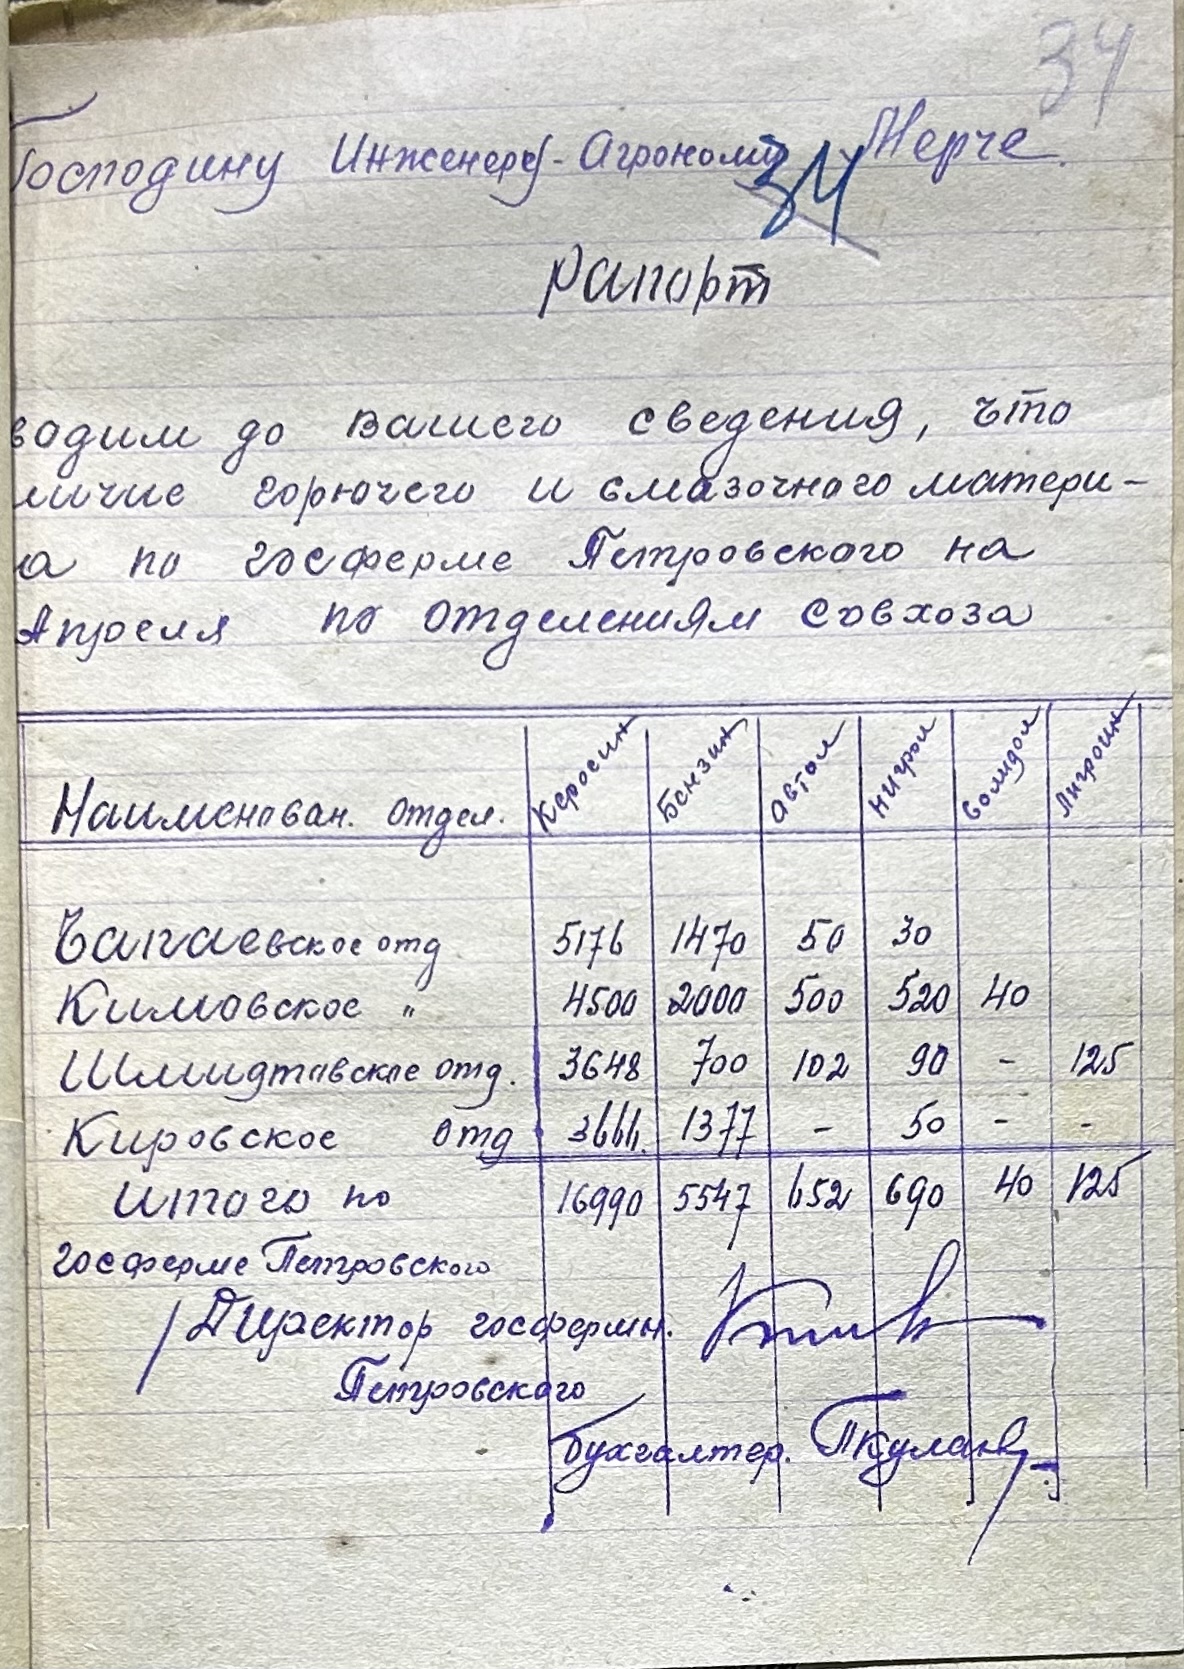 34
Господину Инженеру-Агроному Мерче.
34
Рапорт
водим до вашего сведения, что
личие горючего и смазочного матери-
а по госферме Петровского на
Апреля по отделениям совхоза
Наименован. отдел. Керосин Бензин Автол Нигрол Солидол Лигроин
Чапаевское отд 5176 1470 50 30
Кимовское " 4500 2000 500 520 40
Шмидтовское отд. 3648 700 102 90 - 125
Кировское отд 3666. 1377 - 50 - -
Итого по 16990 5547 652 690 40 125
госферме Петровского
Директор госфермы.
Петровского
Бухгалтер.